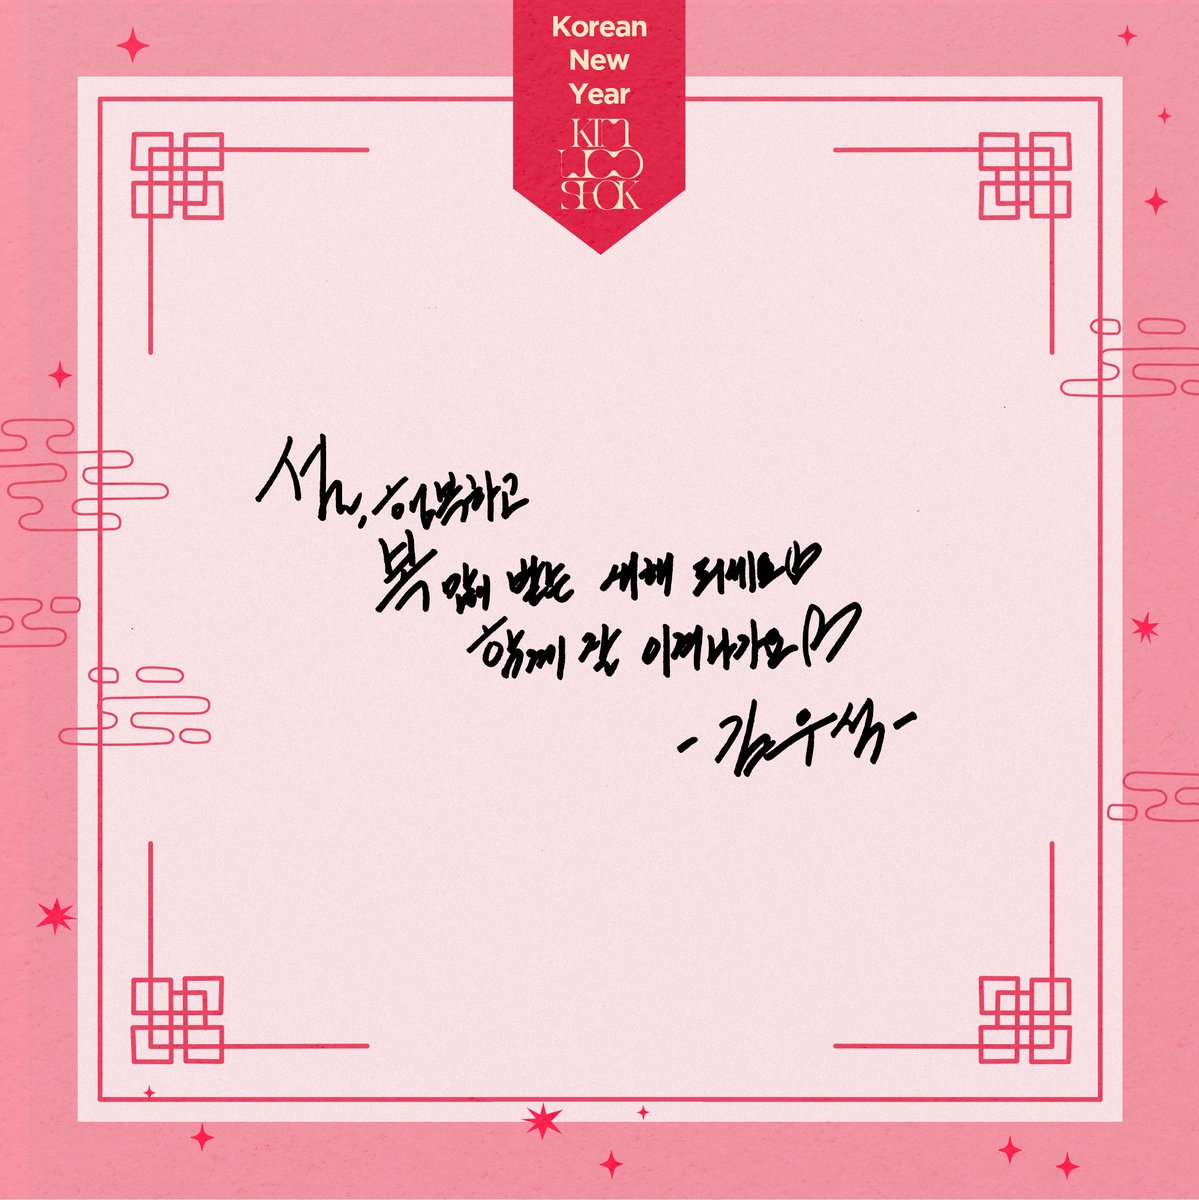 Korean
New
Year
KIM
WOO
SEOK
설, 행복하고
복 많이 받는 새해 되세요♡
함께 잘 이겨나가요♡
-김우석-